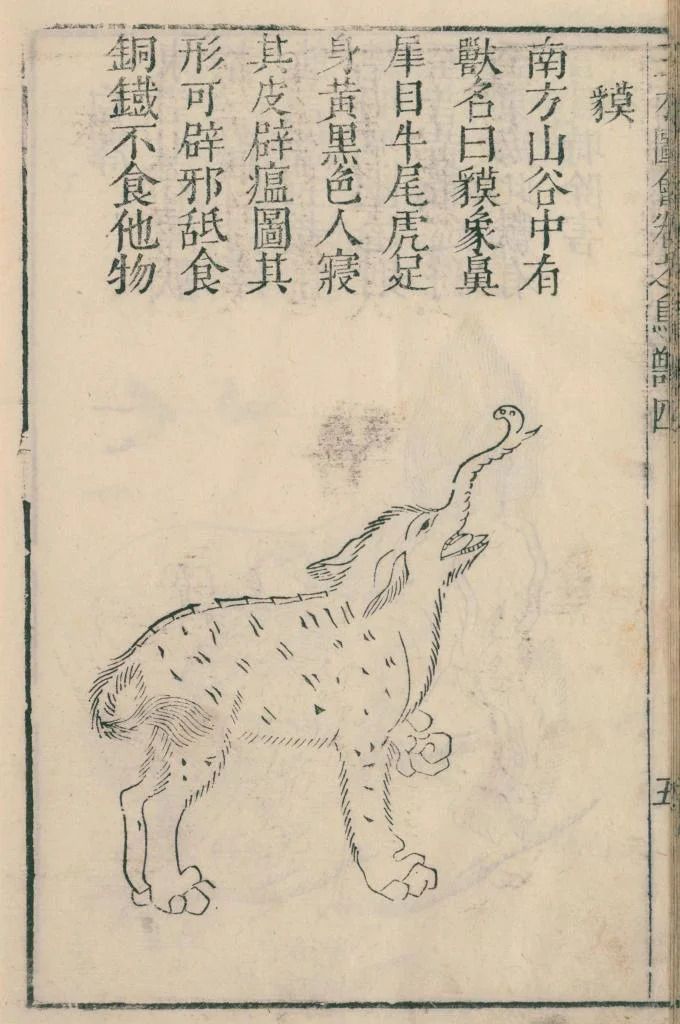 三才圖會卷之鳥獸四
五
貘
南方山谷中有
獸名曰貘象鼻
犀目牛尾虎足
身黃黑色人寢
其皮辟瘟圖其
形可辟邪舐食
銅鐵不食他物